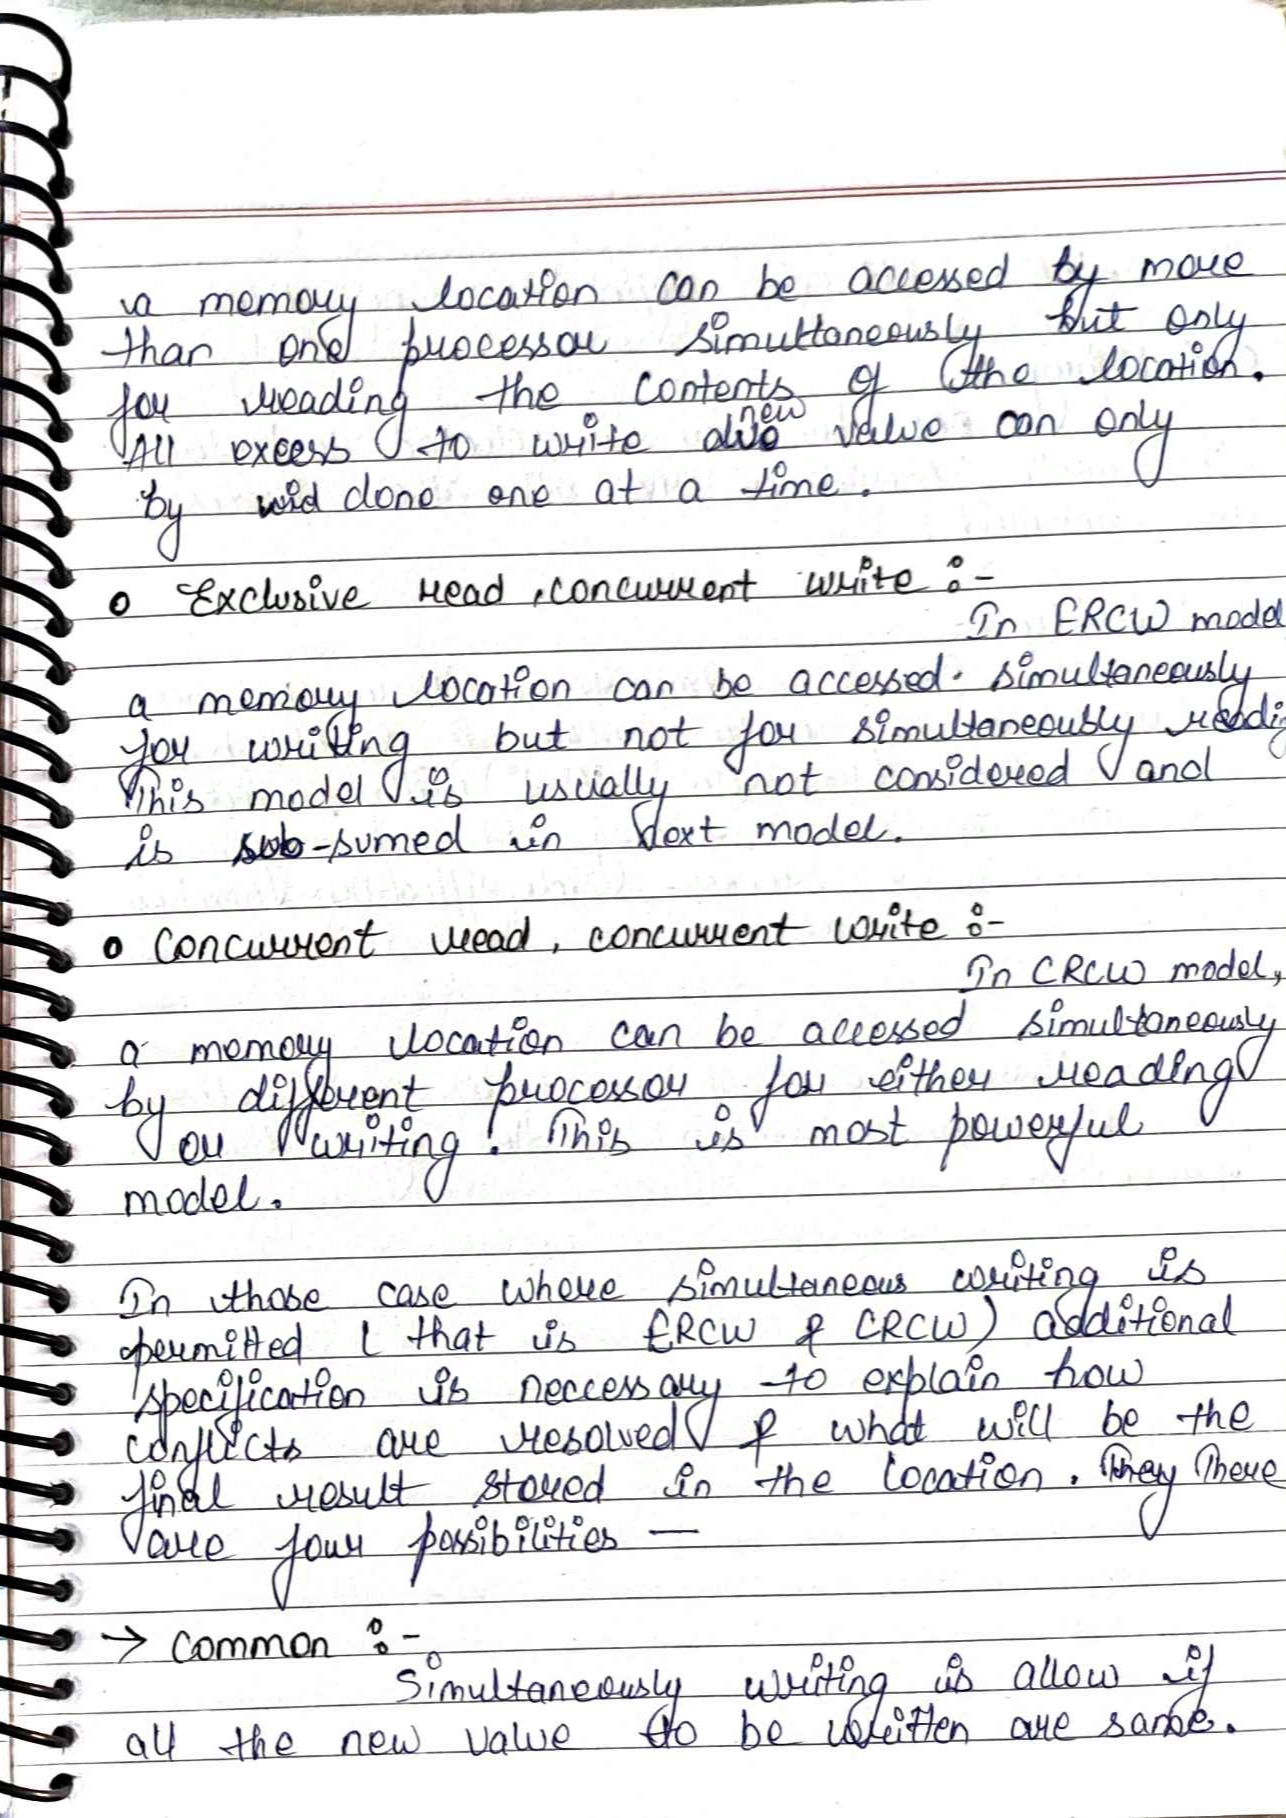 a memory location can be accessed by more
than one processor simultaneously but only
for reading the contents of the location.
new
All excess to write value can only
by done one at a time.
o Exclusive read, concurrent write :-
In ERCW model
a memory location can be accessed. simultaneously
for writing but not for simultaneously readi
This model is usually not considered and
is sub-sumed in next model.
o Concurrent read, concurrent write :-
In CRCW model,
a memory location can be accessed simultaneously
by different processor for either reading
or writing. This is most powerful
model.
In those case where simultaneous writing is
permitted ( that is ERCW & CRCW) additional
specification is neccessary to explain how
conflicts are resolved & what will be the
final result stored in the location. They There
are four possibilities —
→ Common :-
Simultaneously writing is allow if
all the new value to be written are same.